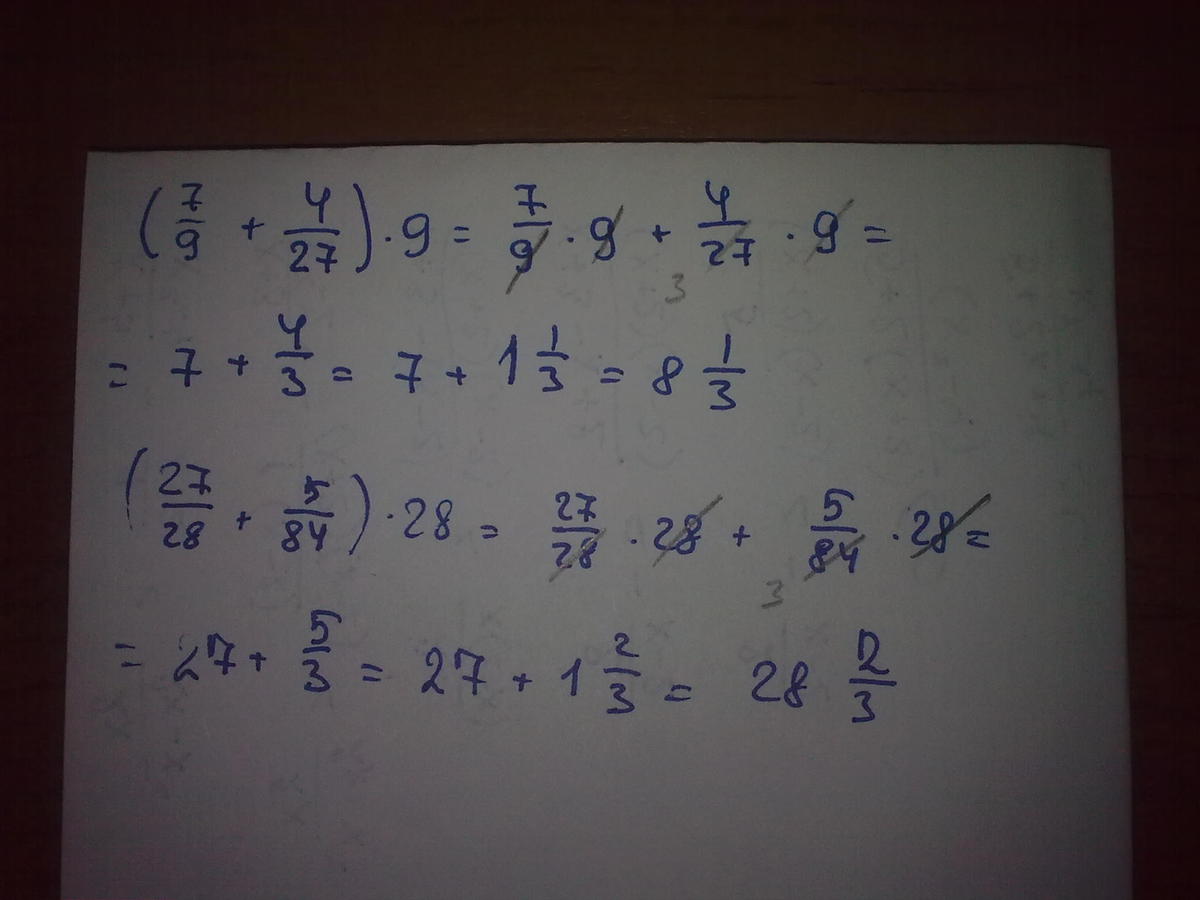 (7/9 + 4/27) · 9 = 7/9 · 9 + 4/27 · 9 =
3
= 7 + 4/3 = 7 + 1 1/3 = 8 1/3
(27/28 + 5/84) · 28 = 27/28 · 28 + 5/84 · 28 =
3
= 27 + 5/3 = 27 + 1 2/3 = 28 2/3